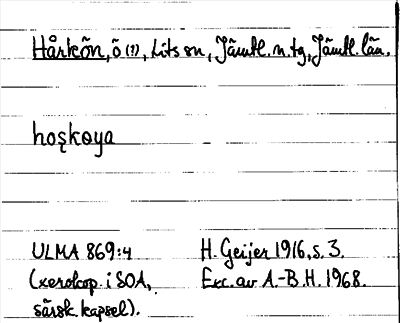 Hårkön, ö (?), Lits sn, Jämtl. n. tg, Jämtl. län.
hoşkøya
ULMA 869:4 H. Geijer 1916, s. 3.
(xerokop. i SOA, Exc. av A.-B. H. 1968.
särsk. kapsel).